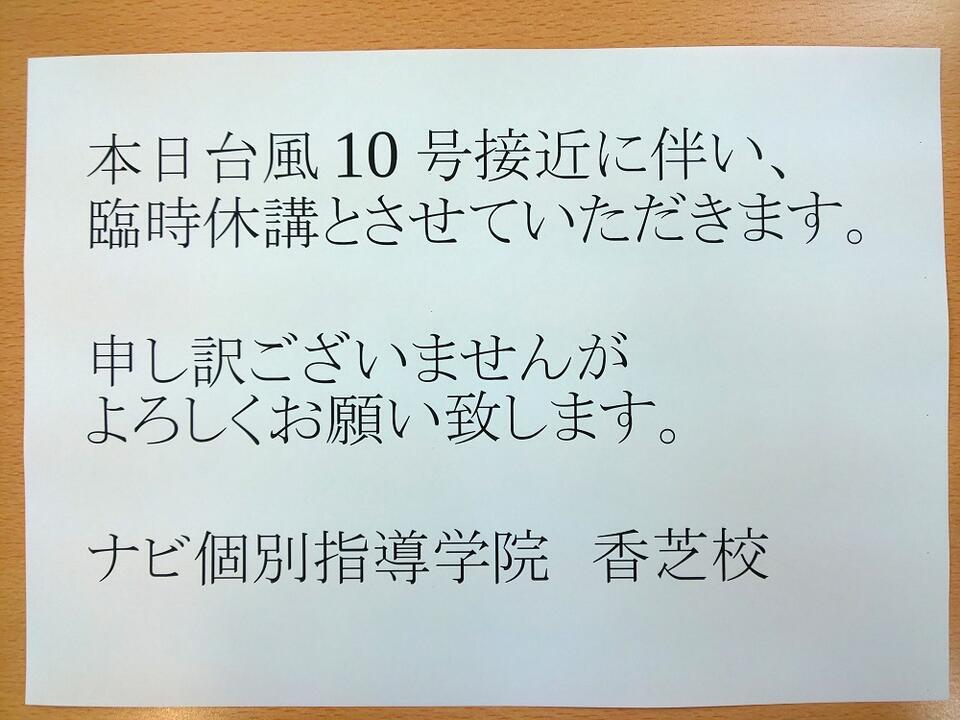 本日台風10号接近に伴い、
臨時休講とさせていただきます。
申し訳ございませんが
よろしくお願い致します。
ナビ個別指導学院　香芝校